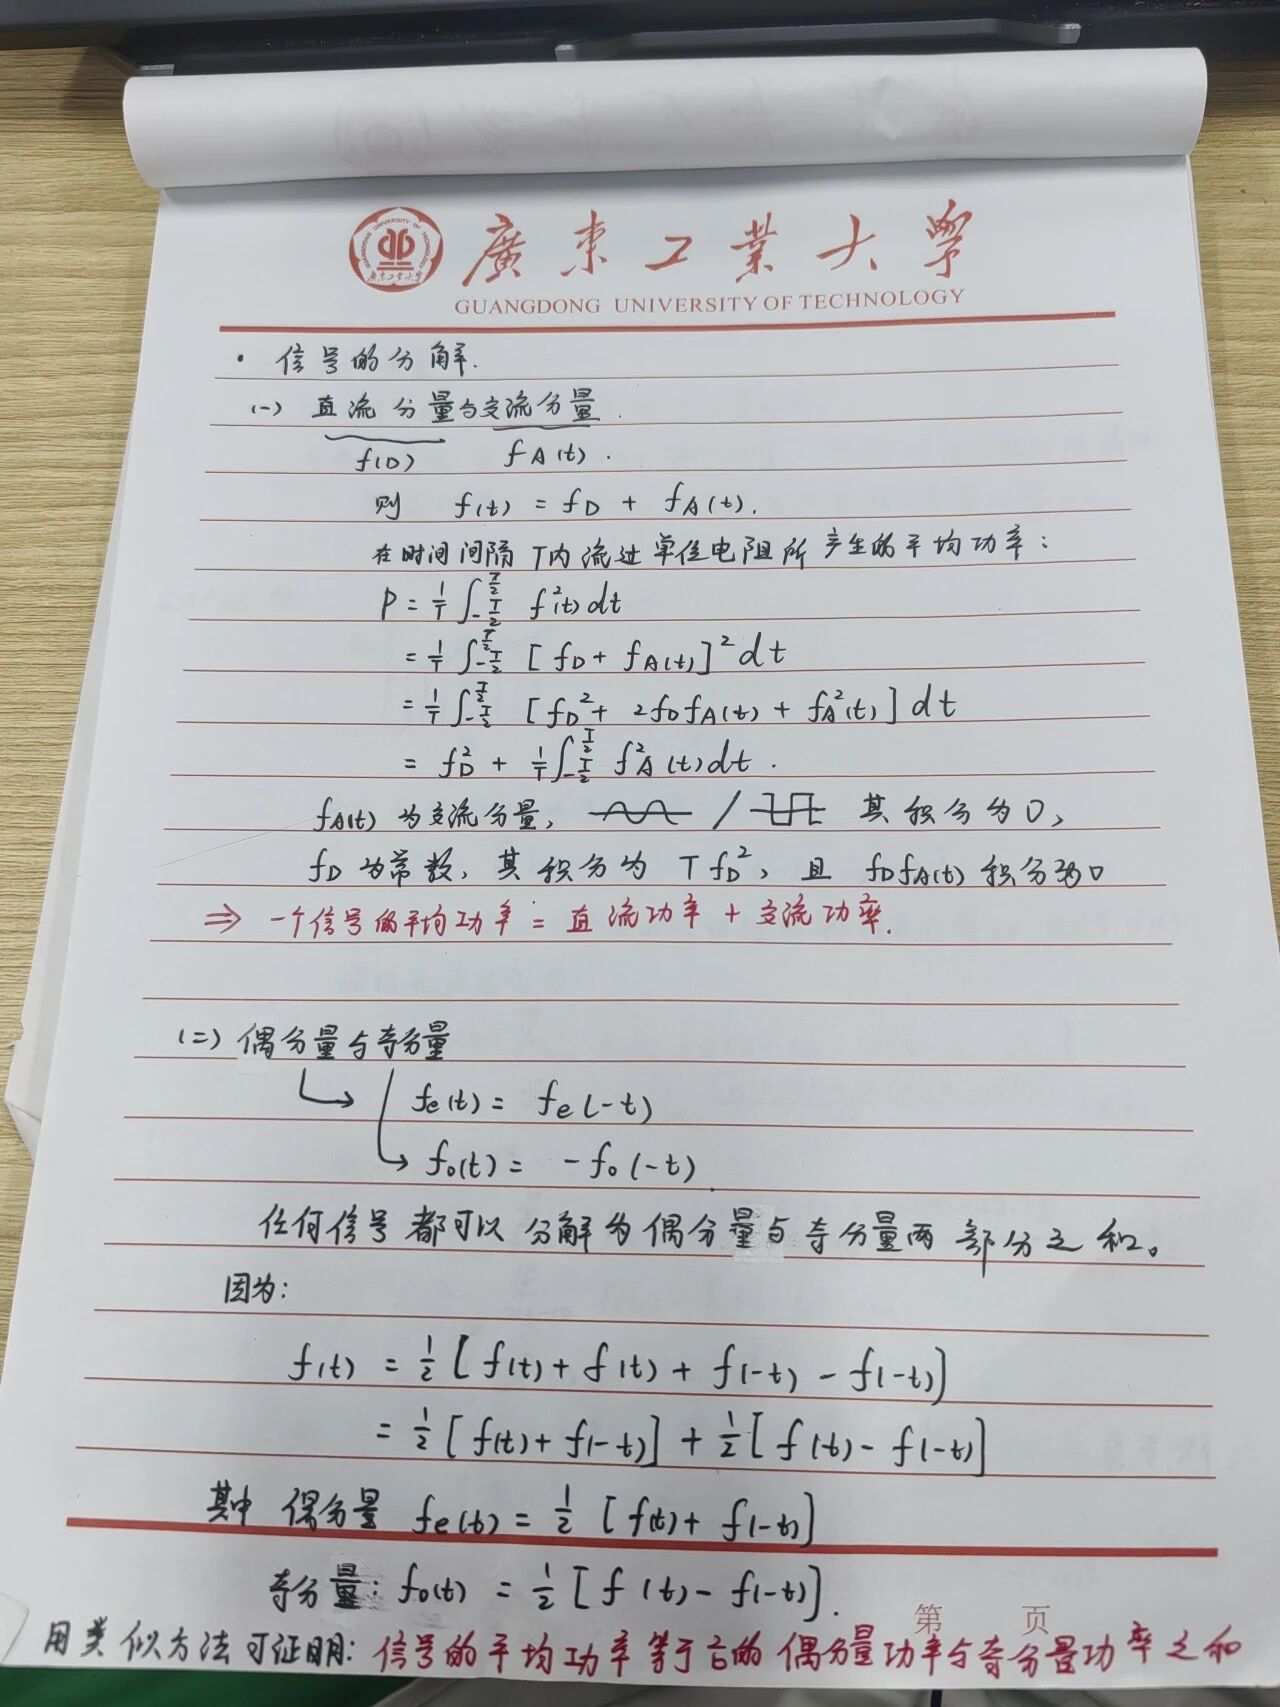 廣東工業大學
GUANGDONG UNIVERSITY OF TECHNOLOGY
· 信号的分解.
(一) 直流分量与交流分量.
f(D) fA(t).
则 f(t) = fD + fA(t).
在时间间隔T内流过单位电阻所产生的平均功率:
P = 1/T ∫_{-T/2}^{T/2} f²(t) dt
= 1/T ∫_{-T/2}^{T/2} [fD + fA(t)]² dt
= 1/T ∫_{-T/2}^{T/2} [fD² + 2fDfA(t) + fA²(t)] dt
= fD² + 1/T ∫_{-T/2}^{T/2} f²A(t) dt.
fA(t) 为交流分量, / 其积分为0,
fD 为常数, 其积分为 TfD², 且 fDfA(t) 积分为0
⇒ 一个信号的平均功率 = 直流功率 + 交流功率.
(二) 偶分量与奇分量
fe(t) = fe(-t)
fo(t) = -fo(-t)
任何信号都可以分解为偶分量与奇分量两部分之和。
因为:
f(t) = 1/2 [f(t) + f(t) + f(-t) - f(-t)]
= 1/2 [f(t) + f(-t)] + 1/2 [f(t) - f(-t)]
其中 偶分量 fe(t) = 1/2 [f(t) + f(-t)]
奇分量: fo(t) = 1/2 [f(t) - f(-t)].
第 页
用类似方法可证明: 信号的平均功率等于它的偶分量功率与奇分量功率之和